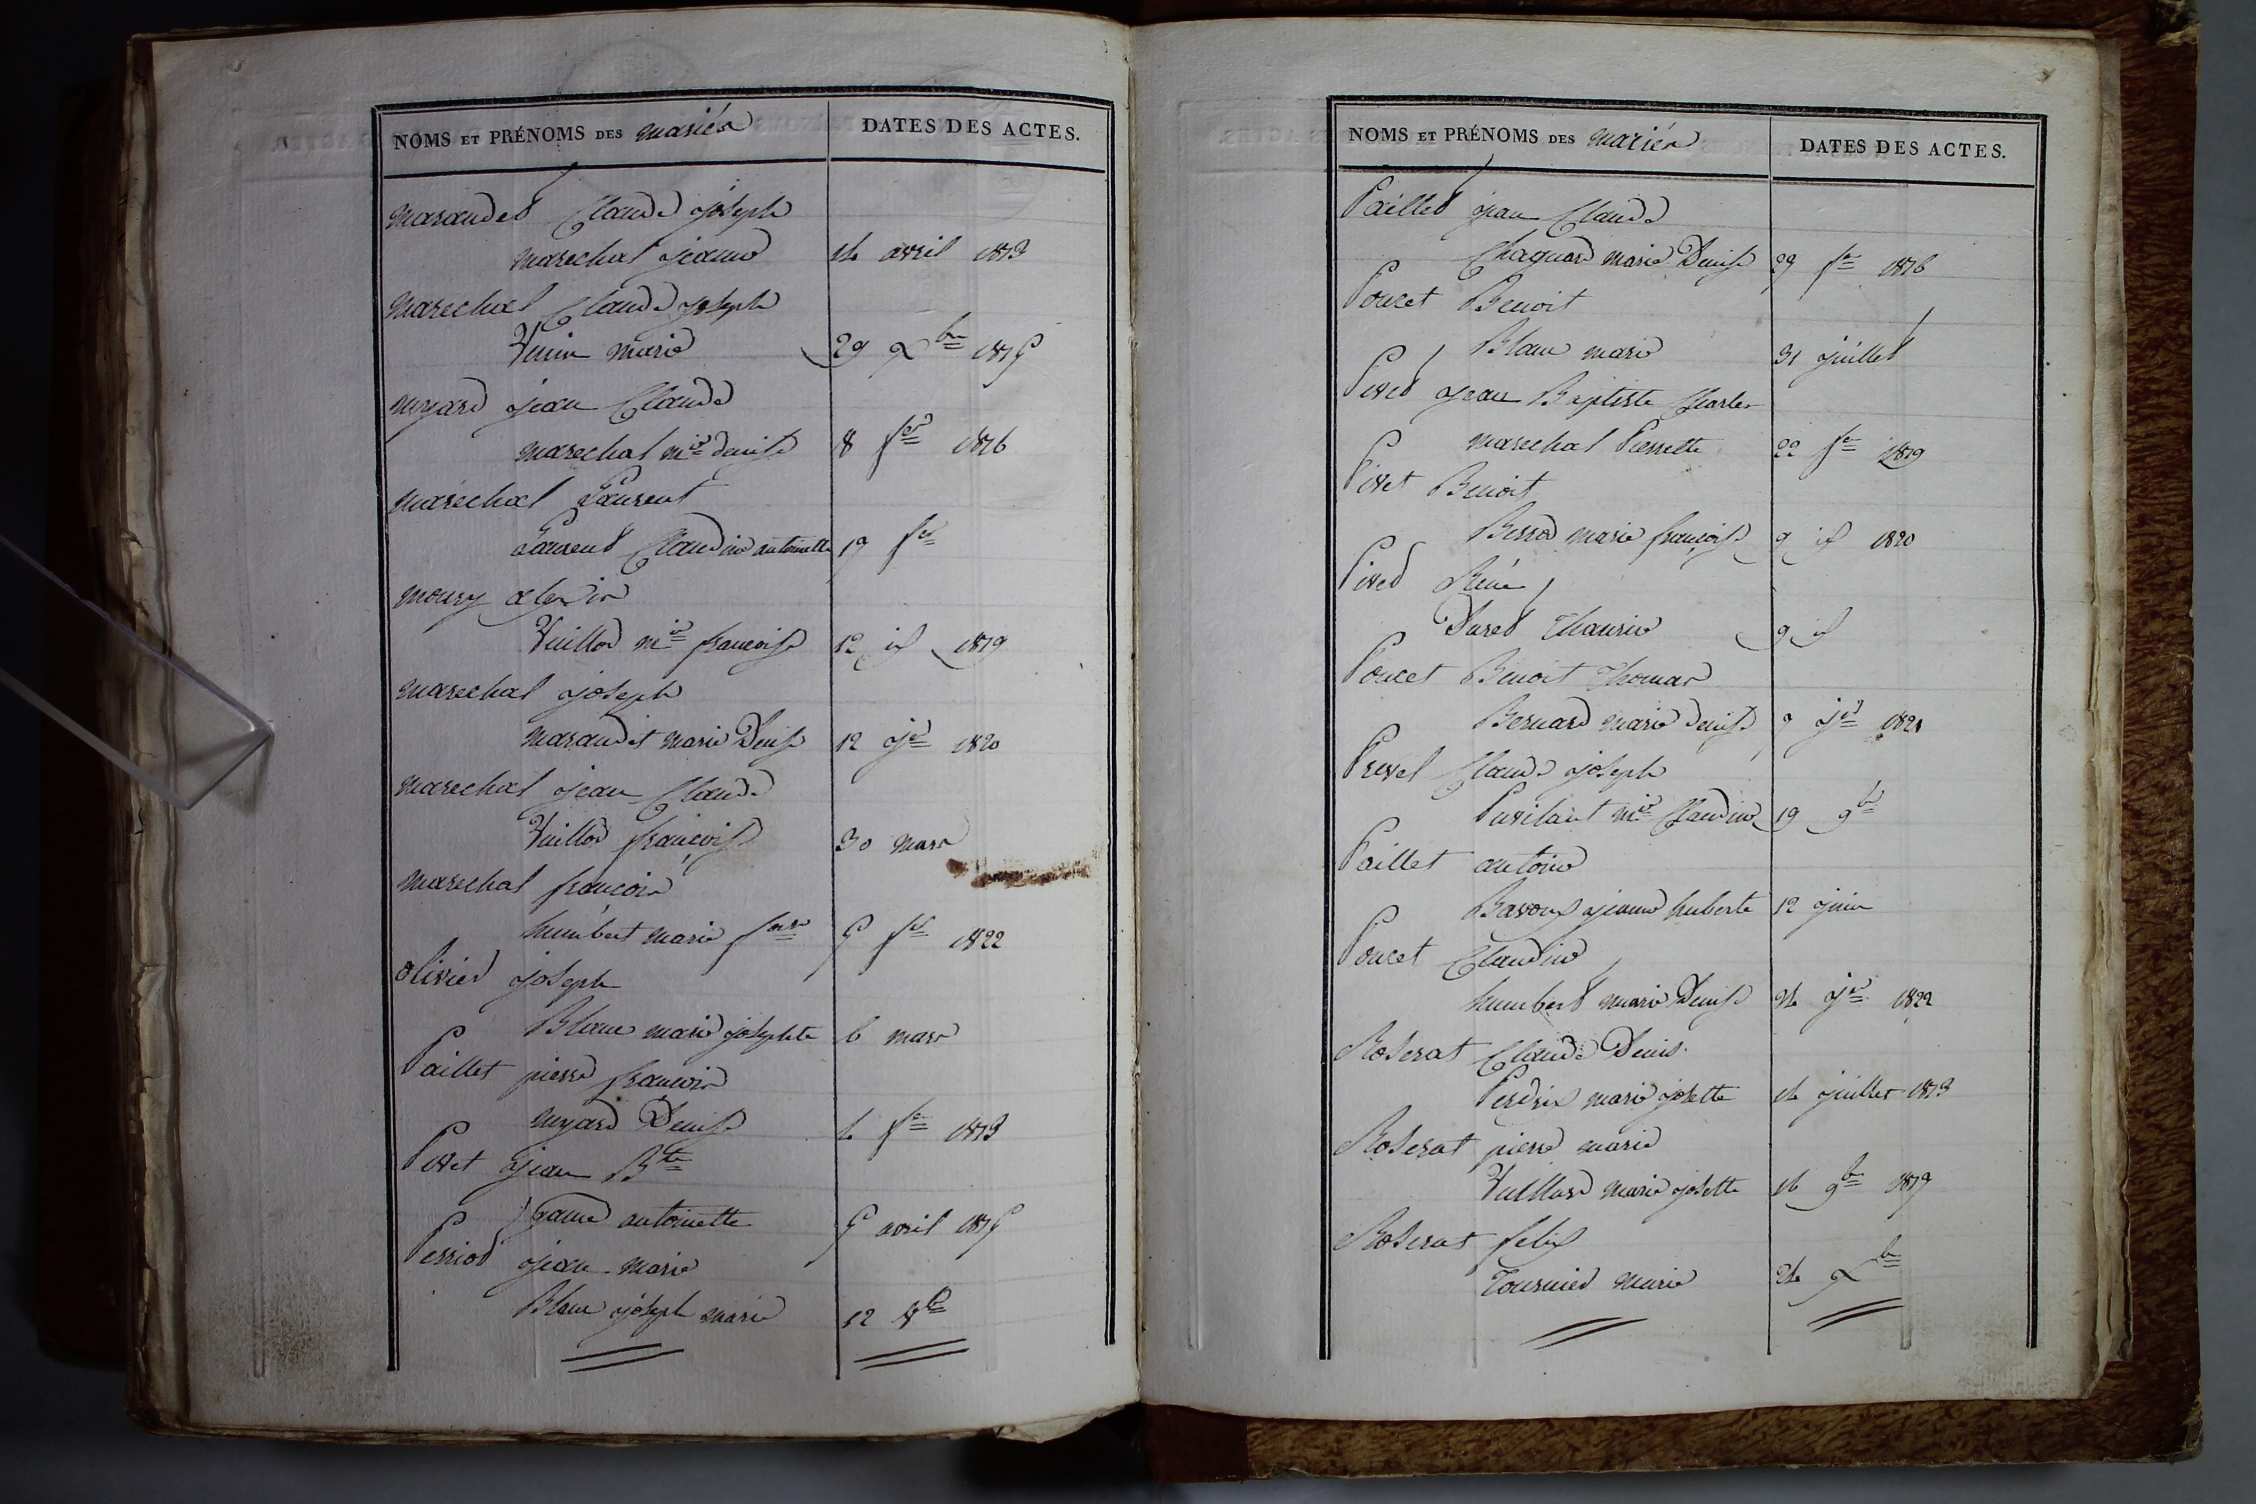 NOMS ET PRÉNOMS DES mariés
DATES DES ACTES.
Marandet Claude joseph
marechal jeanne 14 avril 1813
Marechal Claude joseph
Vuin marie 29 Xbre 1815
myard jean Claude
marechal mie denise 8 fer 1816
maréchal Laurent
Laurent Claudine antoinette 19 fer
moury
Vuillod mie françoise 12 id 1819
marechal joseph
marandet marie Denise 12 jer 1820
marechal jean Claude
Vuillod françoise 30 mars
marechal françois
humbert marie 5 fer 1822
olivier joseph
Blanc marie josephte 6 mars
Paillet pierre françois
myard Denise 4 fer 1813
Pivet jean Bte
antoinette 5 avril 1815
Perriod jean marie
Blanc joseph marie 12
NOMS ET PRÉNOMS DES mariés
DATES DES ACTES.
Paillet jean Claude
marie Denise 29 fer 1816
Poncet Benoit
Blanc marie 31 juillet
Pivet jean Baptiste Charles
marechal Pierrette 22 fer 1819
Pivet Benoit
Berrod marie françoise 9 id 1820
Pivet Réné
Duret 9 id
Poncet Benoit Thomas
Bernard marie denise 9 jer 1821
Prevel Claude joseph
Puvilant mie Claudine 19 9bre
Paillet antoine
Bavoux jeanne huberte 12 juin
Poncet Claudine
humbert marie Denise 24 jer 1822
Roserat Claude Denis
Perdrix marie josette 14 juillet 1813
Roserat pierre marie
Vuillard marie josette 16 9bre 1819
Roserat felix
Tournier marie 24 Xbre